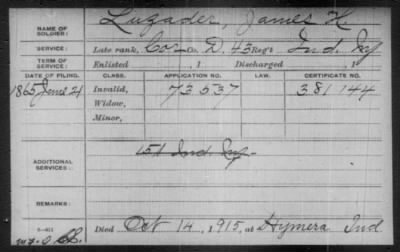 NAME OF SOLDIER: Luzader, James H
SERVICE: Late rank, Cor Co. D, 43 Reg't Ind. Inf
TERM OF SERVICE: Enlisted , 1 Discharged , 1
DATE OF FILING. CLASS. APPLICATION NO. LAW. CERTIFICATE NO.
1865 June 21 Invalid, 73537 381144
Widow,
Minor,
ADDITIONAL SERVICES: 151 Ind Inf
REMARKS:
Died Oct 14, 1915, at Hymera Ind